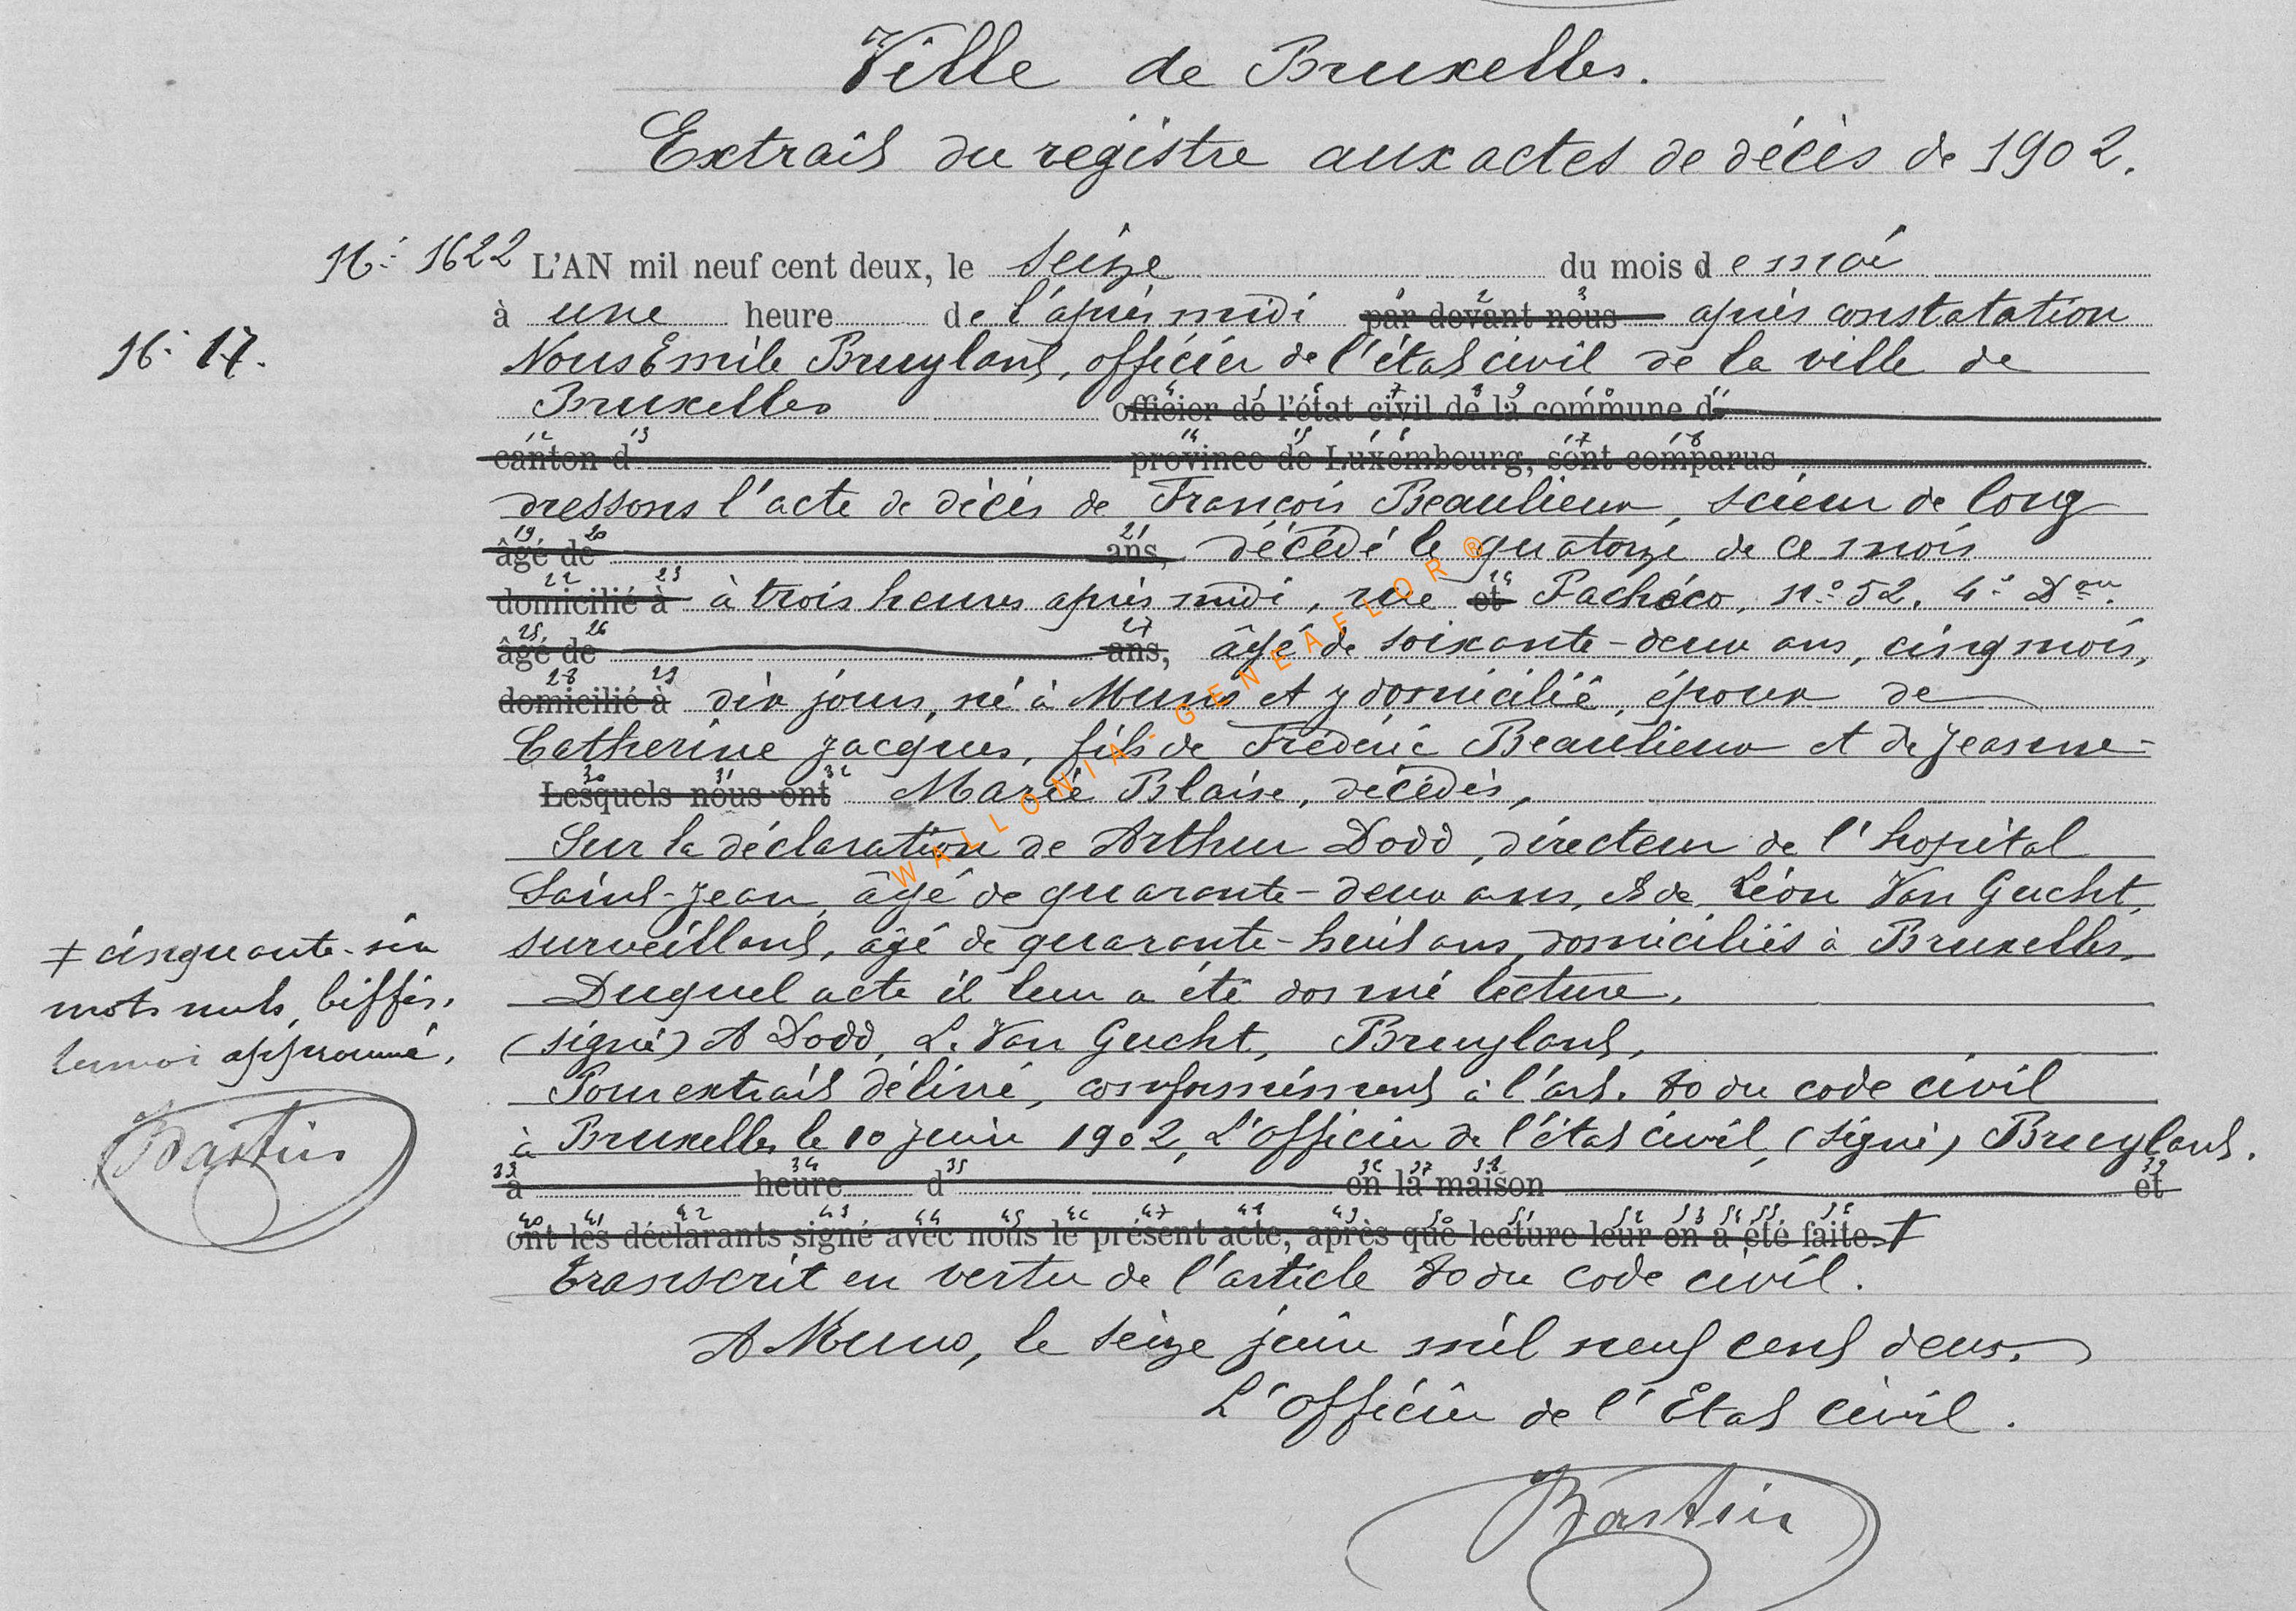 Ville de Bruxelles.
Extrait du registre aux actes de décès de 1902.
N° 1622 L'AN mil neuf cent deux, le seize du mois de mai
à une heure de l'après midi par devant nous après constatation
N° 17.
Nous Emile Bruylant, officier de l'état civil de la ville de
Bruxelles officier de l'état civil de la commune d
canton d province de Luxembourg, sont comparus
dressons l'acte de décès de François Beaulieux, scieur de long
âgé de ans, décédé le quatorze de ce mois
domicilié à à trois heures après midi, rue et Pachéco, n° 52. 4e Don.
âgé de ans, âgé de soixante-deux ans, cinq mois,
domicilié à dix jours, né à Muno et y domicilié, époux de
Catherine Jacques, fils de Frédéric Beaulieux et de Jeanne-
Lesquels nous ont Marie Blaise, décédés,
Sur la déclaration de Arthur Dodd, directeur de l'hopital
Saint-Jean, âgé de quarante-deux ans, et de Léon Van Gucht,
surveillant, âgé de quarante-huit ans, domiciliés à Bruxelles.
Duquel acte il leur a été donné lecture.
(signé) A Dodd, L. Van Gucht, Bruylant,
Pour extrait délivré, conformément à l'art. 80 du code civil
à Bruxelles le 10 juin 1902, L'officier de l'état civil, (signé) Bruylant.
à heure d en la maison et
ont les déclarants signé avec nous le présent acte, après que lecture leur en a été faite. ‡
‡ cinquante-six
mots nuls, biffés,
renvoi approuvé,
Bastin
transcrit en vertu de l'article 80 du code civil.
A Muno, le seize juin mil neuf cent deux.
L'officier de l'Etat civil.
Bastin
WALLONIA-GENEAFLOR ®